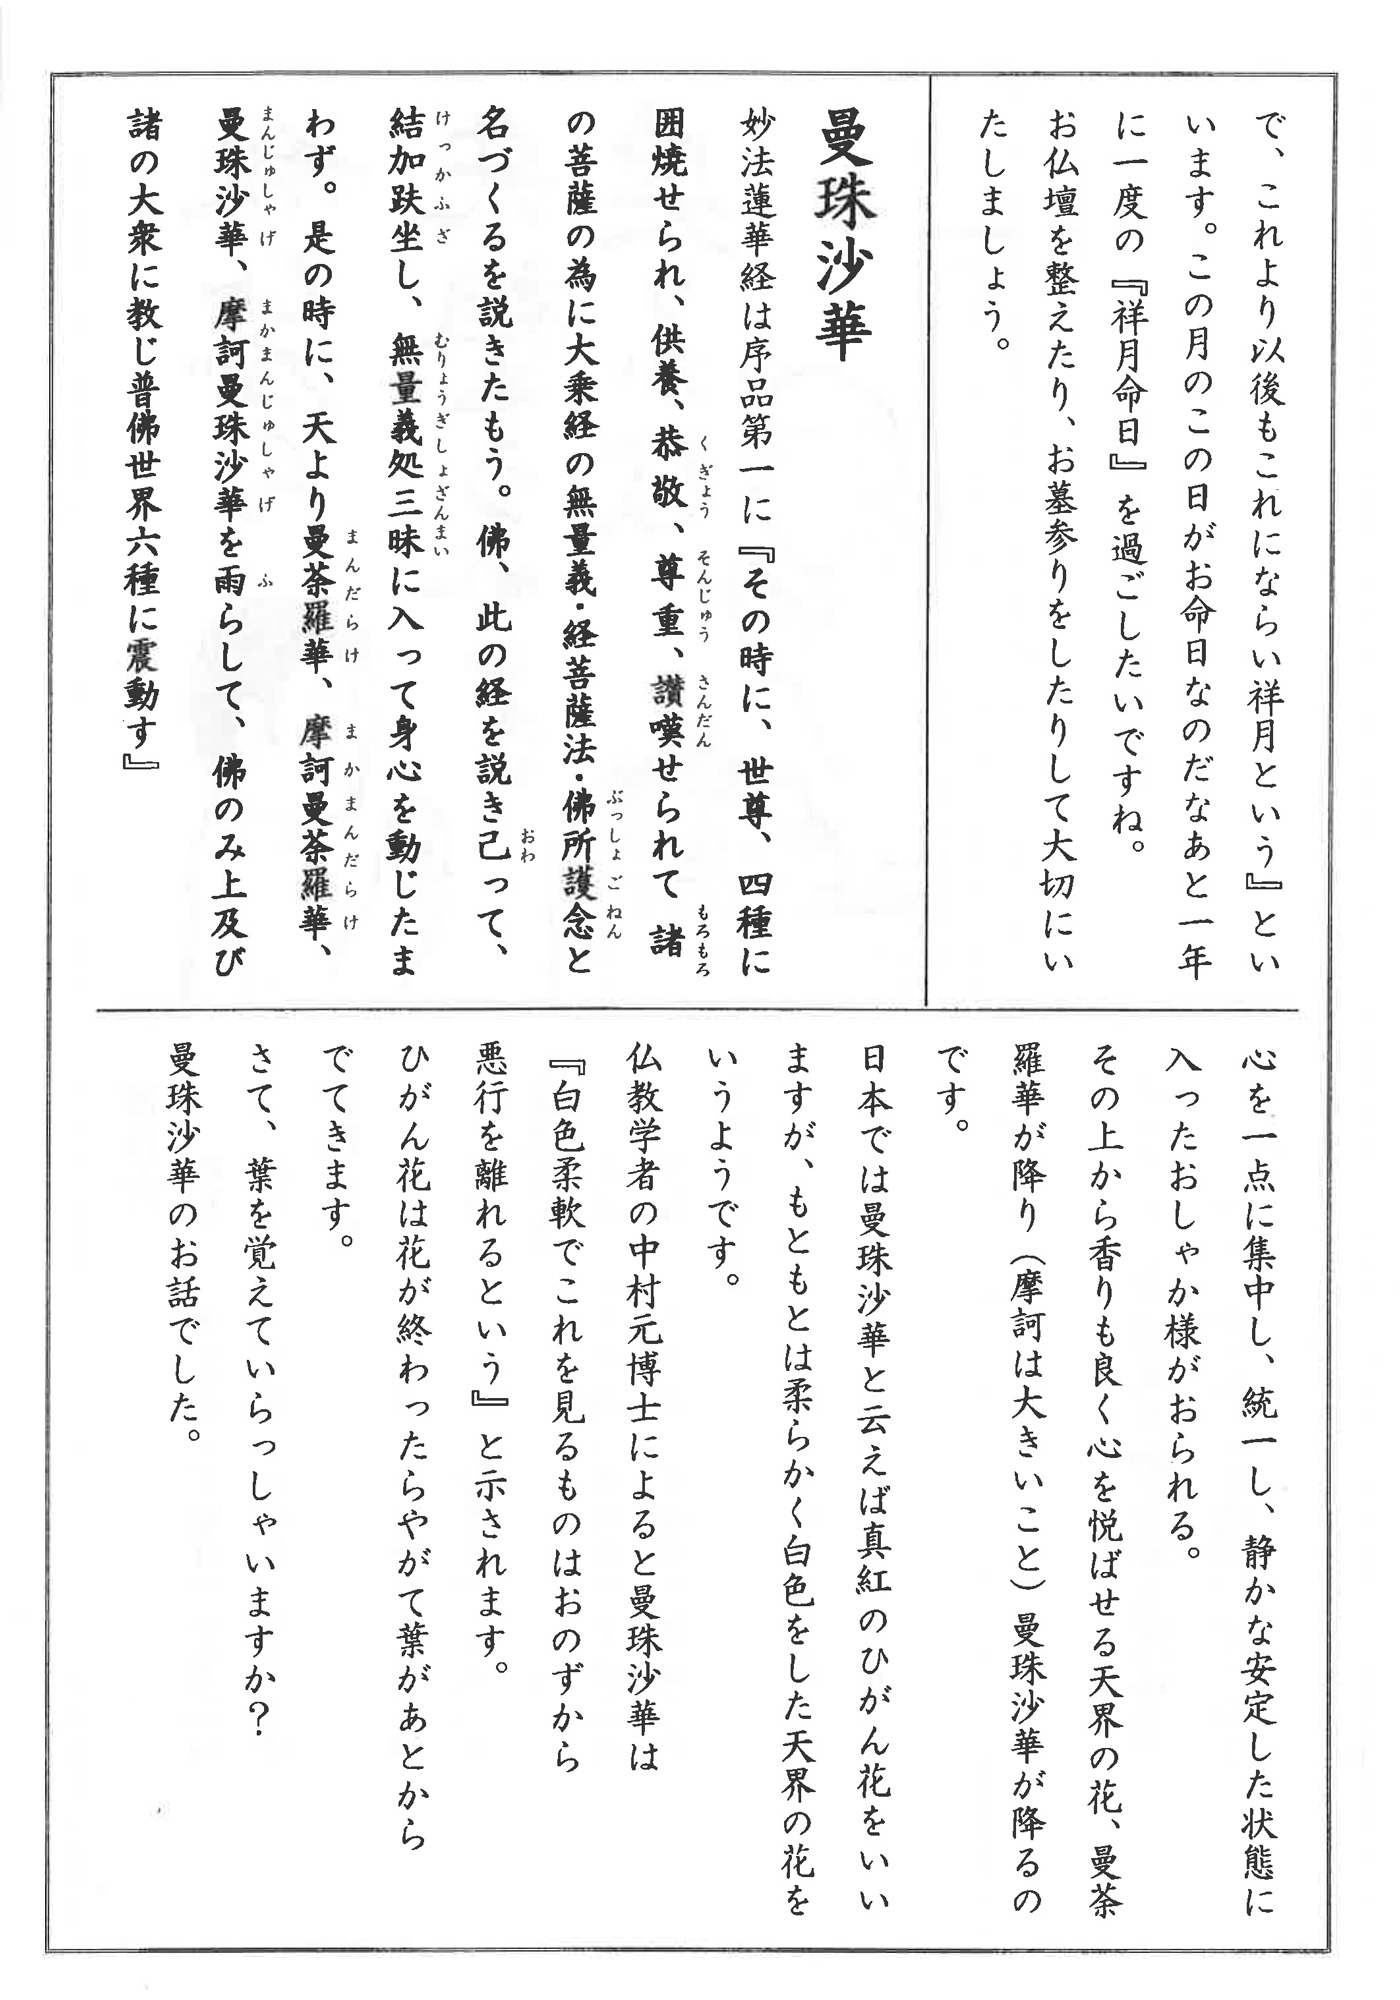 で、これより以後もこれにならい祥月という』とい
います。この月のこの日がお命日なのだなあと一年
に一度の『祥月命日』を過ごしたいですね。
お仏壇を整えたり、お墓参りをしたりして大切にい
たしましょう。
曼珠沙華
妙法蓮華経は序品第一に『その時に、世尊、四種に
囲焼せられ、供養、恭敬、尊重、讃嘆せられて諸
くぎょう そんじゅう さんだん もろもろ
の菩薩の為に大乗経の無量義・経菩薩法・佛所護念と
ぶっしょごねん
名づくるを説きたもう。佛、此の経を説き己って、
おわ
結加趺坐し、無量義処三昧に入って身心を動じたま
けっかふざ むりょうぎしょざんまい
わず。是の時に、天より曼荼羅華、摩訶曼荼羅華、
まんだらけ まかまんだらけ
曼珠沙華、摩訶曼珠沙華を雨らして、佛のみ上及び
まんじゅしゃげ まかまんじゅしゃげ ふ
諸の大衆に教じ普佛世界六種に震動す』
心を一点に集中し、統一し、静かな安定した状態に
入ったおしゃか様がおられる。
その上から香りも良く心を悦ばせる天界の花、曼荼
羅華が降り（摩訶は大きいこと）曼珠沙華が降るの
です。
日本では曼珠沙華と云えば真紅のひがん花をいい
ますが、もともとは柔らかく白色をした天界の花を
いうようです。
仏教学者の中村元博士によると曼珠沙華は
『白色柔軟でこれを見るものはおのずから
悪行を離れるという』と示されます。
ひがん花は花が終わったらやがて葉があとから
でてきます。
さて、葉を覚えていらっしゃいますか？
曼珠沙華のお話でした。